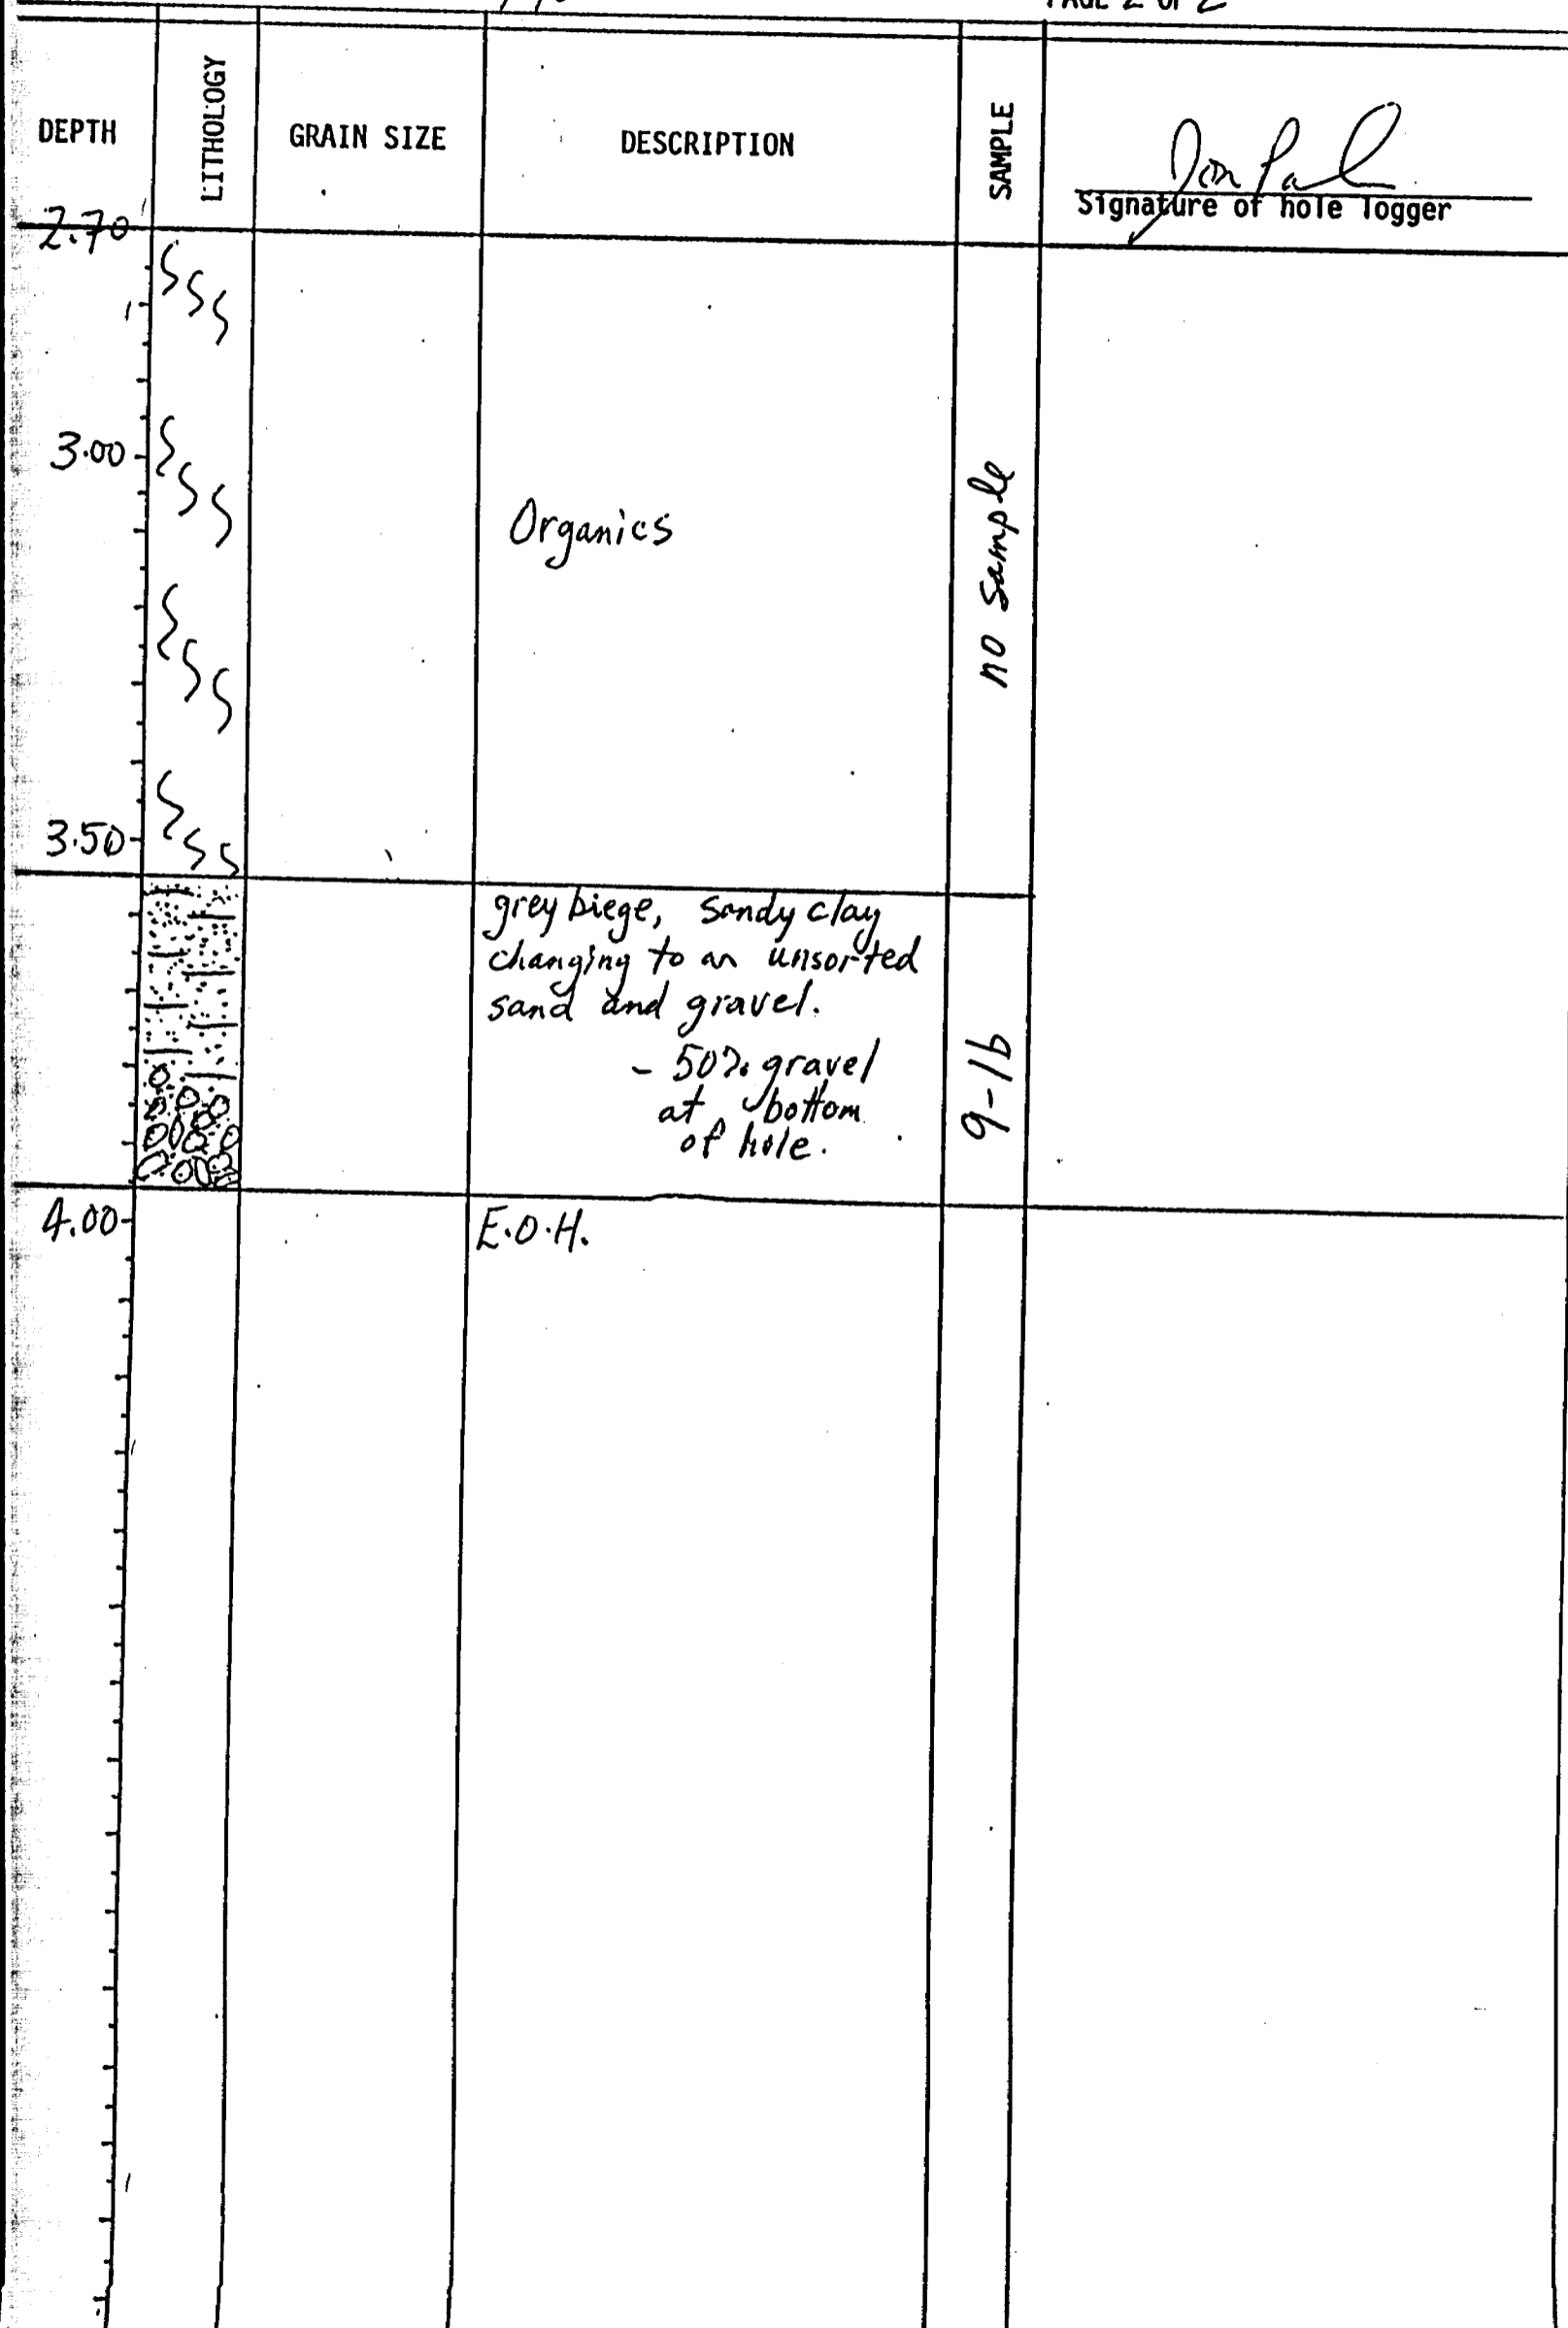 PAGE 2 OF 2
DEPTH
LITHOLOGY
GRAIN SIZE
DESCRIPTION
SAMPLE
Signature of hole logger
2.70
3.00
Organics
no sample
3.50
grey biege, sandy clay
changing to an unsorted
sand and gravel.
- 50% gravel
at bottom
of hole.
9-1b
4.00
E.O.H.